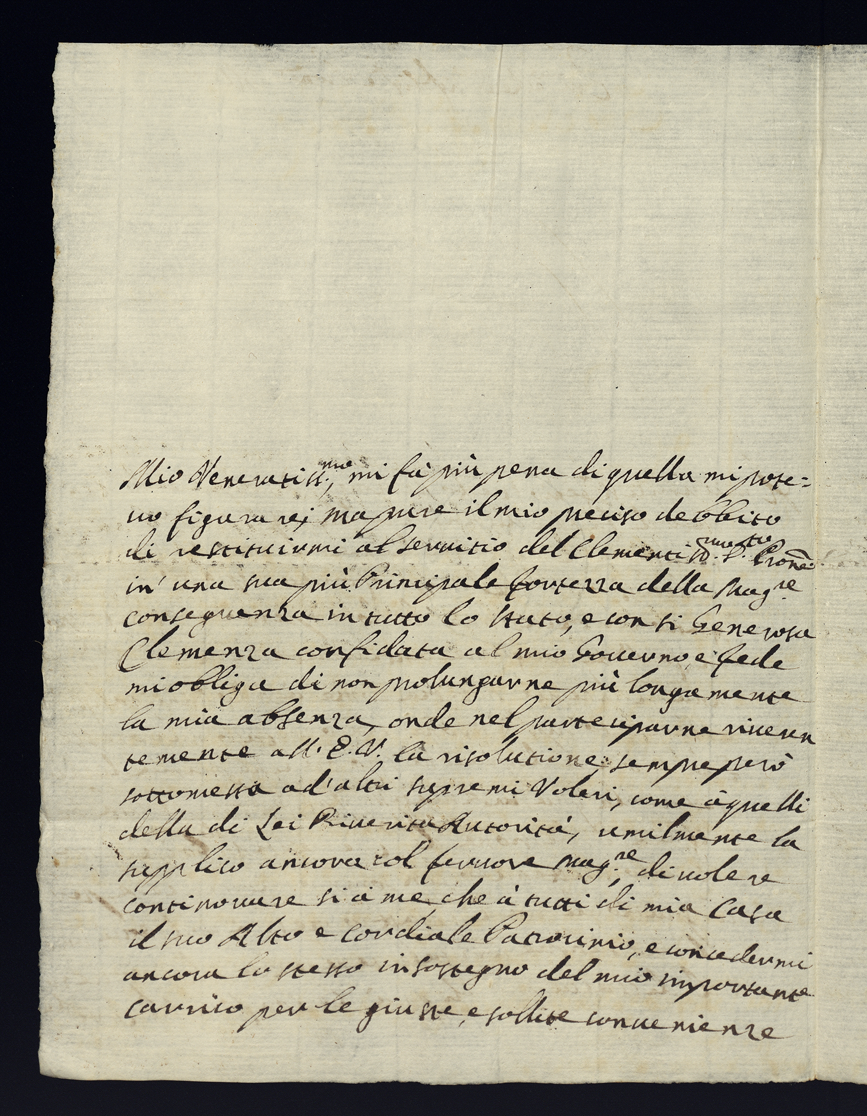 Mio Veneratiss.mo, mi fà più pena di quella mi pote=
vo figurarei ma pure il mio preciso debbito
di restituirmi al servitio del Clementiss.mo P.
in' una sua più Principale fortezza della Mag.re
conseguenza in tutto lo stato, e con si Generosa
Clemenza confidata al mio Governo, e fede
mi obliga di non prolungarne più longamente
la mia absenza, onde nel parteciparne riveren
temente all' E. V. la risolutione, sempre però
sottomessa ad' altri supremi Voleri, come à quelli
della di Lei Riverita Autorità, umilmente la
supplico ancora col fervore mag.re, di volere
continovare si à me, che à tutti di mia Casa
il suo Alto e Cordiale Patrocinio, e concedermi
ancora lo stesso in sostegno del mio importante
carrico per le giuste, e sollite convenienze